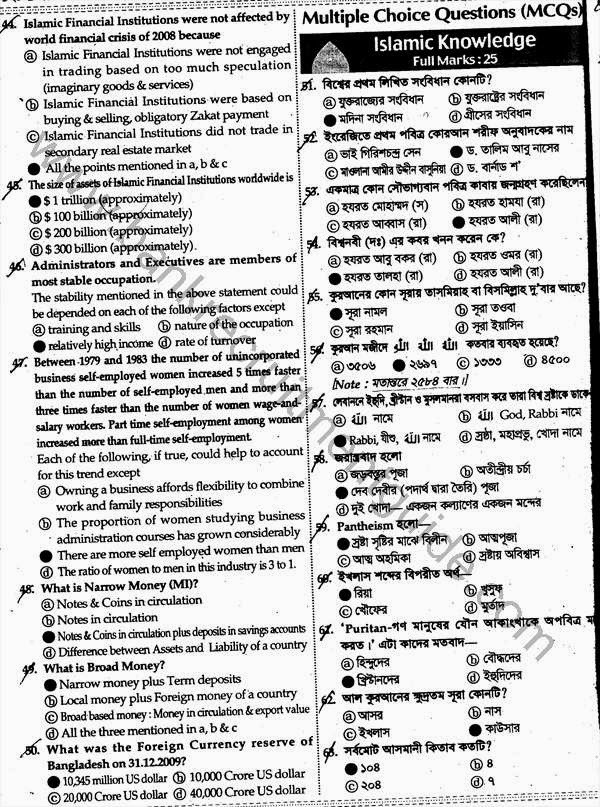 44. Islamic Financial Institutions were not affected by
world financial crisis of 2008 because
ⓐ Islamic Financial Institutions were not engaged
in trading based on too much speculation
(imaginary goods & services)
ⓑ Islamic Financial Institutions were based on
buying & selling, obligatory Zakat payment
ⓒ Islamic Financial Institutions did not trade in
secondary real estate market
● All the points mentioned in a, b & c
45. The size of assets of Islamic Financial Institutions worldwide is
● $ 1 trillion (approximately)
ⓑ $ 100 billion (approximately)
ⓒ $ 200 billion (approximately)
ⓓ $ 300 billion (approximately).
46. Administrators and Executives are members of
most stable occupation.
The stability mentioned in the above statement could
be depended on each of the following factors except
ⓐ training and skills ⓑ nature of the occupation
● relatively high income ⓓ rate of turnover
47. Between 1979 and 1983 the number of unincorporated
business self-employed women increased 5 times faster
than the number of self-employed men and more than
three times faster than the number of women wage-and-
salary workers. Part time self-employment among women
increased more than full-time self-employment.
Each of the following, if true, could help to account
for this trend except
ⓐ Owning a business affords flexibility to combine
work and family responsibilities
ⓑ The proportion of women studying business
administration courses has grown considerably
● There are more self employed women than men
ⓓ The ratio of women to men in this industry is 3 to 1.
48. What is Narrow Money (MI)?
ⓐ Notes & Coins in circulation
ⓑ Notes in circulation
● Notes & Coins in circulation plus deposits in savings accounts
ⓓ Difference between Assets and Liability of a country
49. What is Broad Money?
● Narrow money plus Term deposits
ⓑ Local money plus Foreign money of a country
ⓒ Broad based money : Money in circulation & export value
ⓓ All the three mentioned in a, b & c
50. What was the Foreign Currency reserve of
Bangladesh on 31.12.2009?
● 10,345 million US dollar ⓑ 10,000 Crore US dollar
ⓒ 20,000 Crore US dollar ⓓ 40,000 Crore US dollar
Multiple Choice Questions (MCQs)
Islamic Knowledge
Full Marks : 25
51. বিশ্বের প্রথম লিখিত সংবিধান কোনটি?
ⓐ যুক্তরাজ্যের সংবিধান ⓑ যুক্তরাষ্ট্রের সংবিধান
● মদিনা সংবিধান ⓓ গ্রীসের সংবিধান
52. ইংরেজিতে প্রথম পবিত্র কোরআন শরীফ অনুবাদকের নাম
ⓐ ভাই গিরিশচন্দ্র সেন ● ড. তালিম আবু নাসের
ⓒ মাওলানা আমীর উদ্দীন বাসুনিয়া ⓓ ড. বার্নার্ড শ'
53. একমাত্র কোন সৌভাগ্যবান পবিত্র কাবার জন্মগ্রহণ করেছিলেন
ⓐ হযরত মোহাম্মদ (স) ⓑ হযরত হামযা (রা)
ⓒ হযরত আব্বাস (রা) ● হযরত আলী (রা)
54. বিশ্বনবী (দঃ) এর কবর খনন করেন কে?
ⓐ হযরত আবু বকর (রা) ⓑ হযরত ওমর (রা)
● হযরত তালহা (রা) ⓓ হযরত আলী (রা)
55. কুরআনের কোন সূরায় তাসমিয়াহ বা বিসমিল্লাহ দু'বার আছে?
● সূরা নামল ⓑ সূরা তওবা
ⓒ সূরা রহমান ⓓ সূরা ইয়াসিন
56. কুরআন মজীদে الله الله الله কতবার ব্যবহৃত হয়েছে?
ⓐ ৩৫০৬ ● ২৬৯৭ ⓒ ১৩৩৩ ⓓ ৪৫০০
[Note : মতান্তরে ২৫৮৪ বার।]
57. লেবাননে ইহুদি, খ্রীস্টান ও মুসলমানরা বসবাস করে তারা বিশ্ব স্রষ্টাকে ডাকে
ⓐ الله নামে ⓑ الله God, Rabbi নামে
● Rabbi, যীশু, الله নামে ⓓ স্রষ্ঠা, মহাপ্রভু, খোদা নামে
58. হলো
ⓐ জড়বস্তুর পূজা ⓑ অতীন্দ্রীয় চর্চা
● দেব দেবীর (পদার্থ দ্বারা তৈরি) পূজা
ⓓ দুই খোদা— একজন কল্যাণের একজন মন্দের
59. Pantheism হলো—
● স্রষ্টা সৃষ্টির মাঝে বিলীন ⓑ আত্মপূজা
ⓒ আত্ম অহমিকা ⓓ স্রষ্টায় অবিশ্বাস
60. ইখলাস শব্দের বিপরীত অর্থ—
● রিয়া ⓑ
ⓒ খৌফের ⓓ মুর্তাদ
61. 'Puritan-গণ মানুষের যৌন আকাংখাকে অপবিত্র ম
করত।' এটা কাদের মতবাদ—
ⓐ হিন্দুদের ⓑ বৌদ্ধদের
● খ্রিস্টানদের ⓓ ইহুদিদের
62. আল কুরআনের ক্ষুদ্রতম সূরা কোনটি?
ⓐ আসর ⓑ নাস
ⓒ ইখলাস ● কাউসার
63. সর্বমোট আসমানী কিতাব কতটি?
● ১০৪ ⓑ ৪
ⓒ ২০৪ ⓓ ৭